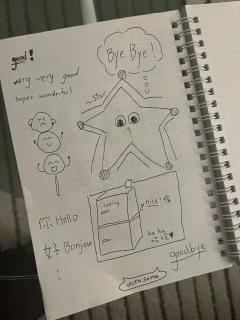 good!
very very good
super wonderful
Bye Bye!
~Star
你 Hello
好 Bonjour
!
nice!
ha ha
goodbye